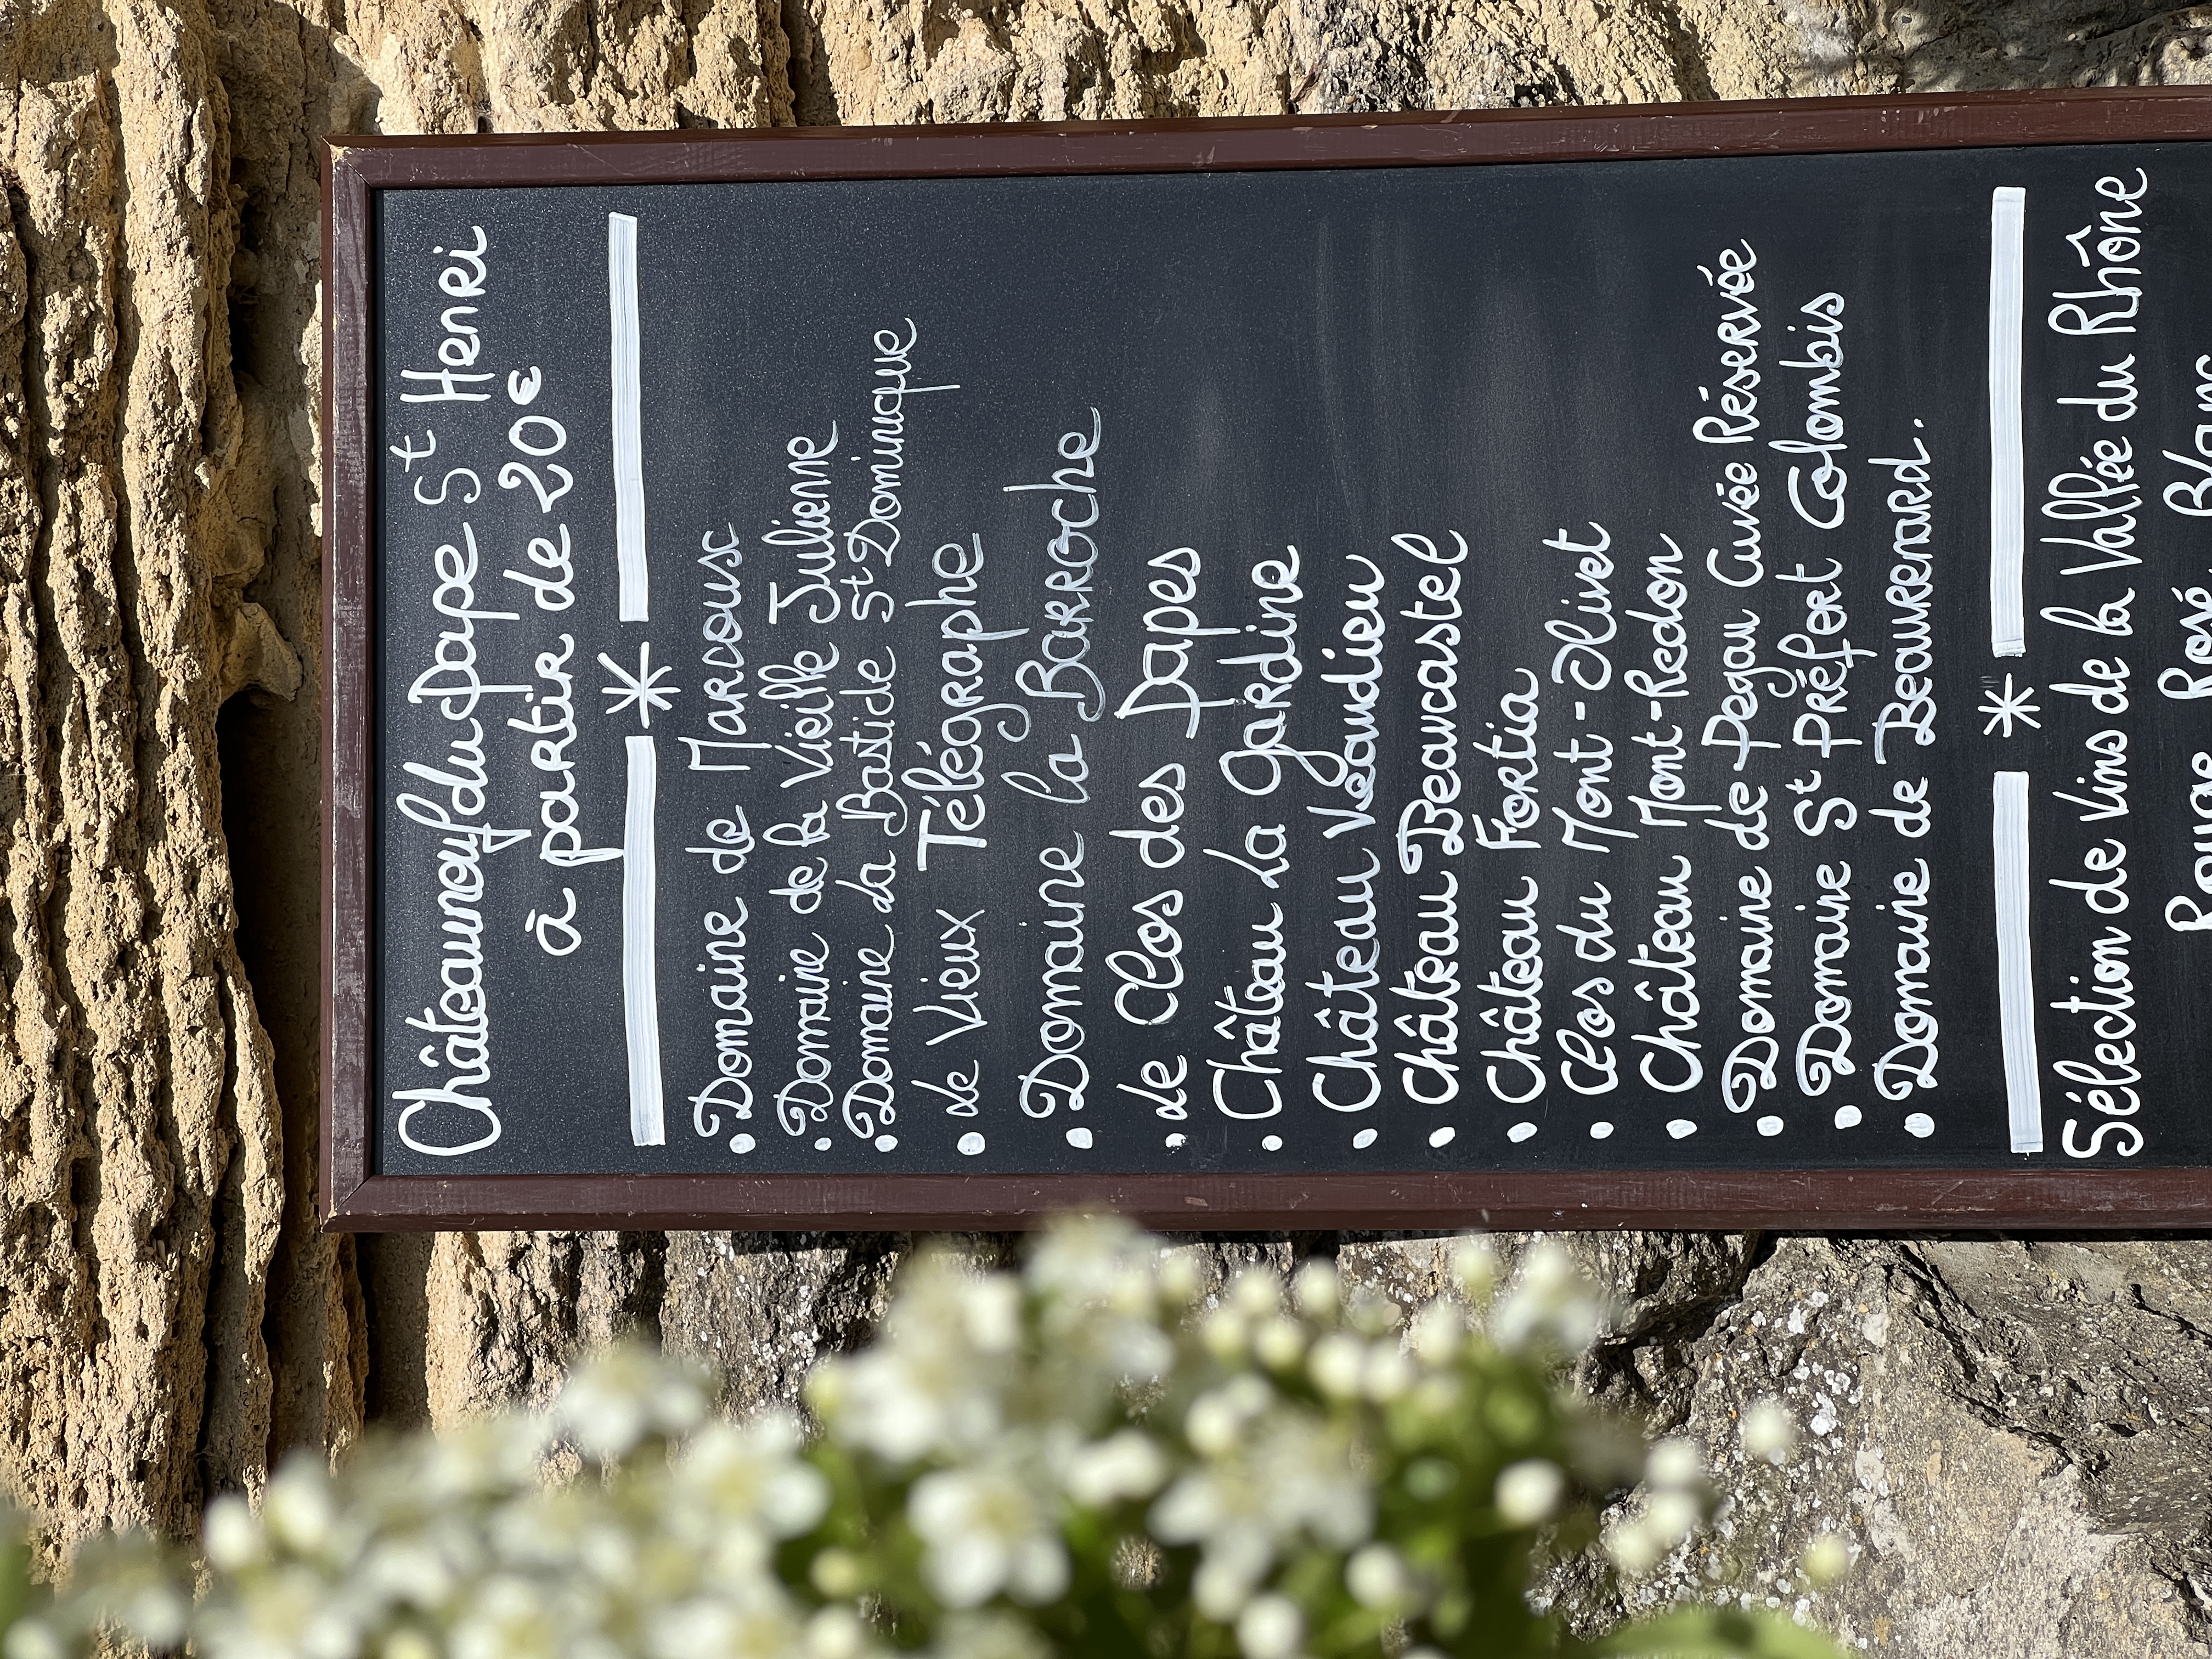 Châteauneuf du pape St Henri
à partir de 20€
• Domaine de Marcoux
• Domaine de la Vieille Julienne
• Domaine La Bastide St Dominique
• de Vieux Télégraphe
• Domaine la Barroche
• de Clos des papes
• Château La gardine
• Château Vaudieu
• Château Beaucastel
• Château Fortia
• Clos du Mont-Olivet
• Château Mont-Redon
• Domaine de Pegau Cuvée Réservée
• Domaine St Préfert Colombis
• Domaine de Beaurenard.
Sélection de Vins de la Vallée du Rhône
Rouge Rosé Blanc